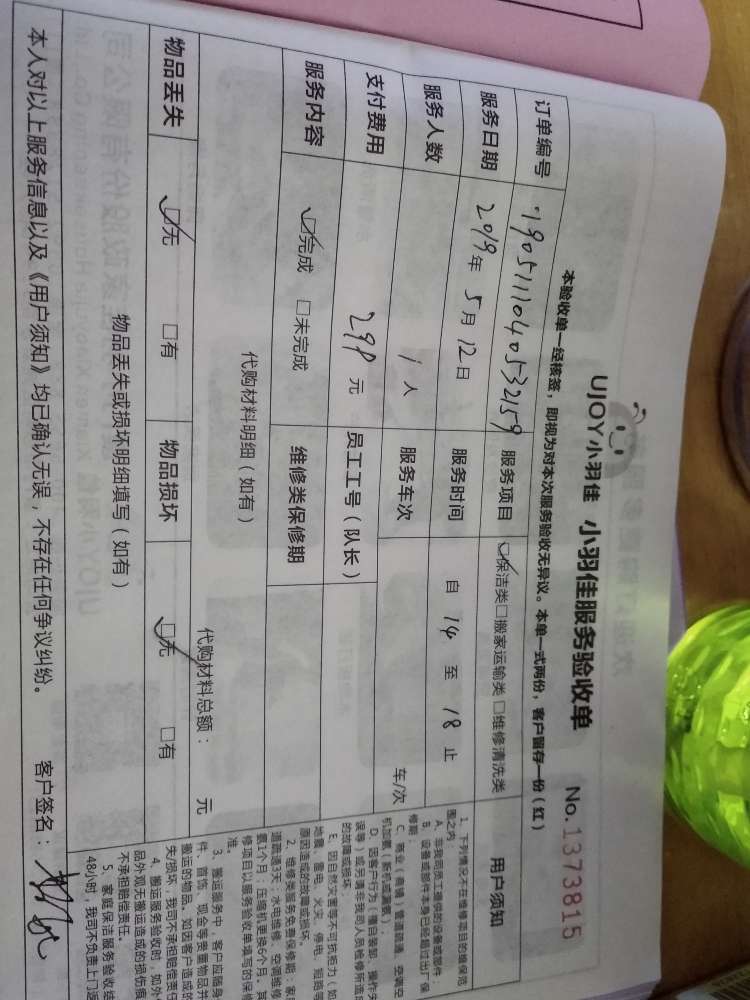 UJOY小羽佳 小羽佳服务验收单 No.1373815
本验收单一经核签，即视为对本次服务验收无异议。本单一式两份，客户留存一份（红）
订单编号 1905111040532159 服务项目 ☑保洁类□搬家运输类□维修清洗类
服务日期 2019年5月12日 服务时间 自 14 至 18 止
服务人数 1人 服务车次 车/次
支付费用 298元 员工工号（队长）
服务内容 ☑完成 □未完成 维修类保修期
代购材料明细（如有） 代购材料总额： 元
物品丢失 ☑无 □有 物品损坏 ☑无 □有
物品丢失或损坏明细填写（如有）
本人对以上服务信息以及《用户须知》均已确认无误，不存在任何争议纠纷。 客户签名：
用户须知
1、下列情况不在维修项目的维保范
围之内：
A、非我司员工提供的设备或部件；
B、设备或部件本身已经超过出厂保
修期；
C、商业（商铺）管道疏通、空调空
机加氨（新机或漏氨）；
D、因客户行为（擅自装卸、操作失
误等）或另请非我司人员检修所造成
的故障或损坏
E、因自然灾害等不可抗拒力（如
地震、雷电、火灾、停电、短路等
原因造成的故障或损坏。
2、维修类服务免费保修期：家
道疏通3天；水电维修、空调维修
氨1个月；压缩机更换6个月。其
修项目以服务验收单填写的保修
准。
3、搬运服务中，客户应随身
件、首饰、现金等贵重物品并
搬运的物品。如因客户造成的
失/损坏，我司不承担赔偿责任
4、搬运服务验收时，如外
品外观无搬运造成的损伤痕
不承担赔偿责任。
5、家庭保洁服务验收结
48小时，我司不负责上门返